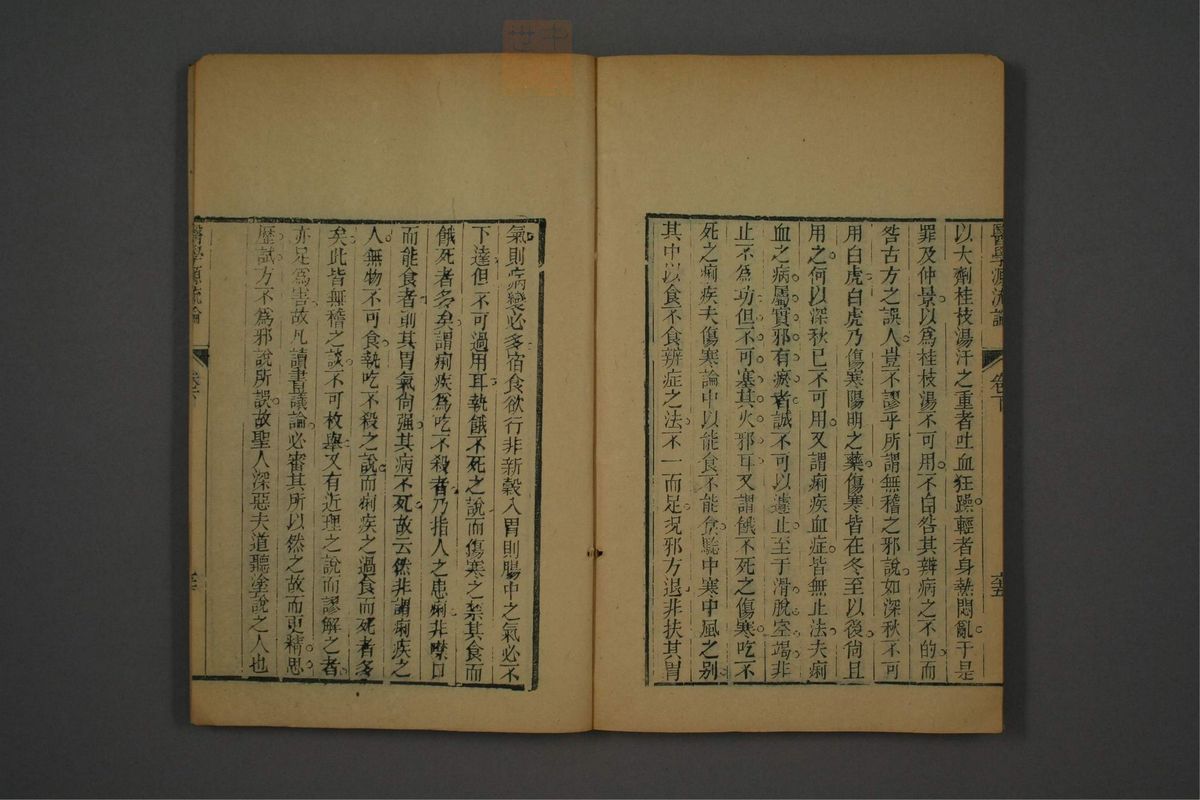 醫學源流論 卷下
以大劑桂枝湯汗之重者吐血狂躁輕者身熱悶亂于是
罪及仲景以爲桂枝湯不可用不自咎其辨病之不的而
咎古方之誤人豈不謬乎所謂無稽之邪說如深秋不可
用白虎白虎乃傷寒陽明之藥傷寒皆在冬至以後尙且
用之何以深秋已不可用又謂痢疾血症皆無止法夫痢
血之病屬實邪有瘀者誠不可以遽止至于滑脫空竭非
止不爲功但不可塞其火邪耳又謂餓不死之傷寒吃不
死之痢疾夫傷寒論中以能食不能食驗中寒中風之別
其中以食不食辨症之法不一而足況邪方退非扶其胃
氣則病變必多宿食欲行非新穀入胃則腸中之氣必不
下達但不可過用耳執餓不死之說而傷寒之禁其食而
餓死者多矣謂痢疾爲吃不殺者乃指人之患痢非噤口
而能食者則其胃氣尙强其病不死故云然非謂痢疾之
人無物不可食執吃不殺之說而痢疾之過食而死者多
矣此皆無稽之談不可枚舉又有近理之說而謬解之者
亦足爲害故凡讀書議論必審其所以然之故而更精思
歷試方不爲邪說所誤故聖人深惡夫道聽塗說之人也
醫學源流論